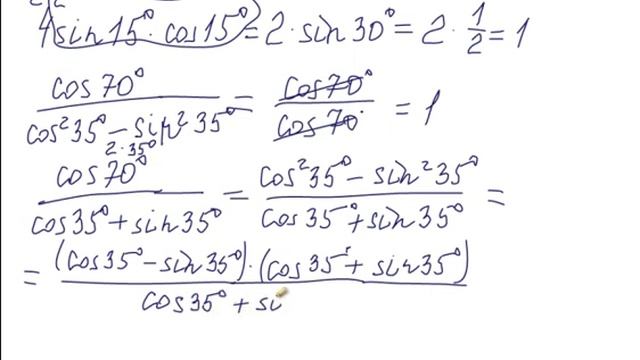 4sin15°·cos15°=2·sin30°=2·1/2=1
cos70°/(cos²35°-sin²35°)=cos70°/cos70°=1
2·35°
cos70°/(cos35°+sin35°)=(cos²35°-sin²35°)/(cos35°+sin35°)=
=(cos35°-sin35°)·(cos35°+sin35°)/(cos35°+si